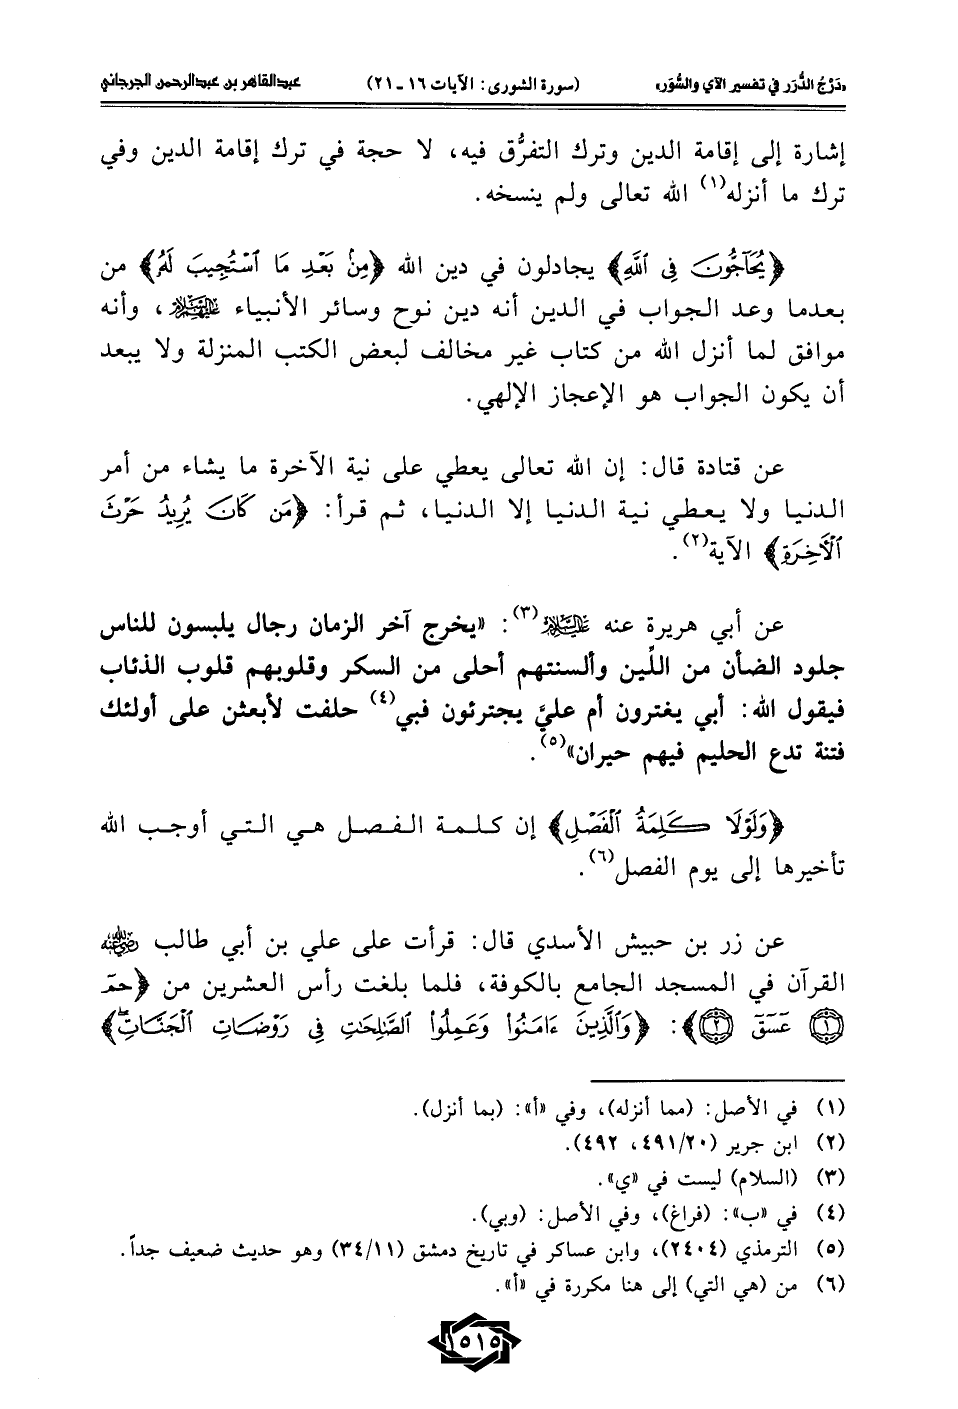 «دَرْجُ الدُّرَر في تفسير الآي والسُّوَر» (سورة الشورى: الآيات ١٦ ـ ٢١) عبدالقاهر بن عبدالرحمن الجرجاني
إشارة إلى إقامة الدين وترك التفرُّق فيه، لا حجة في ترك إقامة الدين وفي
ترك ما أنزله(١) الله تعالى ولم ينسخه.
﴿يُحَآجُّونَ فِى ٱللَّهِ﴾ يجادلون في دين الله ﴿مِنۢ بَعْدِ مَا ٱسْتُجِيبَ لَهُۥ﴾ من
بعدما وعد الجواب في الدين أنه دين نوح وسائر الأنبياء عليهم السلام، وأنه
موافق لما أنزل الله من كتاب غير مخالف لبعض الكتب المنزلة ولا يبعد
أن يكون الجواب هو الإعجاز الإلهي.
عن قتادة قال: إن الله تعالى يعطي على نية الآخرة ما يشاء من أمر
الدنيا ولا يعطي نية الدنيا إلا الدنيا، ثم قرأ: ﴿مَن كَانَ يُرِيدُ حَرْثَ
ٱلْأَخِرَةِ﴾ الآية(٢).
عن أبي هريرة عنه عليه السلام(٣): «يخرج آخر الزمان رجال يلبسون للناس
جلود الضأن من اللِّين وألسنتهم أحلى من السكر وقلوبهم قلوب الذئاب
فيقول الله: أبي يغترون أم عليَّ يجترئون فبي(٤) حلفت لأبعثن على أولئك
فتنة تدع الحليم فيهم حيران»(٥).
﴿وَلَوْلَا كَلِمَةُ ٱلْفَصْلِ﴾ إن كلمة الفصل هي التي أوجب الله
تأخيرها إلى يوم الفصل(٦).
عن زر بن حبيش الأسدي قال: قرأت على علي بن أبي طالب رضي الله عنه
القرآن في المسجد الجامع بالكوفة، فلما بلغت رأس العشرين من ﴿حمٓ
١ عٓسٓقٓ ٢﴾: ﴿وَٱلَّذِينَ ءَامَنُوا۟ وَعَمِلُوا۟ ٱلصَّٰلِحَٰتِ فِى رَوْضَاتِ ٱلْجَنَّاتِ﴾
(١) في الأصل: (مما أنزله)، وفي «أ»: (بما أنزل).
(٢) ابن جرير (٤٩١/٢٠، ٤٩٢).
(٣) (السلام) ليست في «ي».
(٤) في «ب»: (فراغ)، وفي الأصل: (وبي).
(٥) الترمذي (٢٤٠٤)، وابن عساكر في تاريخ دمشق (٣٤/١١) وهو حديث ضعيف جداً.
(٦) من (هي التي) إلى هنا مكررة في «أ».
١٥١٥